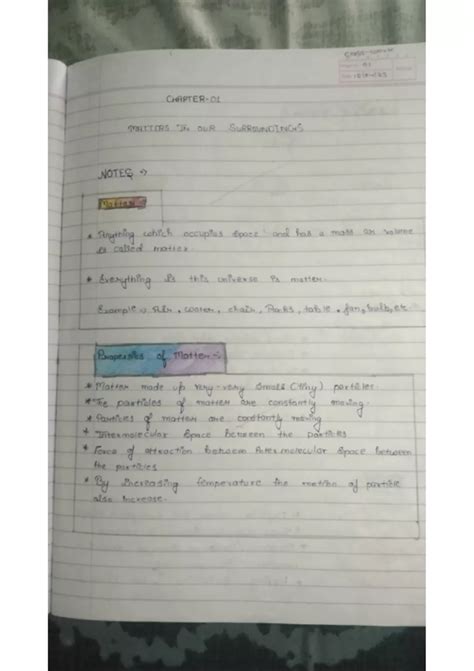 CLASS-WORK
01
CHAPTER-01
MATTERS IN OUR SURROUNDINGS
NOTES →
Matter :-
* Anything which occupies space and has a mass or volume
is called matter.
* Everything is this universe is matter.
Example :- Air, water, chair, table, fan, bulb, etc.
Properties of Matter :-
* Matter made up very-very small (tiny) particles.
* The particles of matter are constantly moving.
* Particles of matter are constantly moving
* Intermolecular space between the particles
* Force of attraction between intermolecular space between
the particles
* By increasing temperature the motion of particle
also increase.